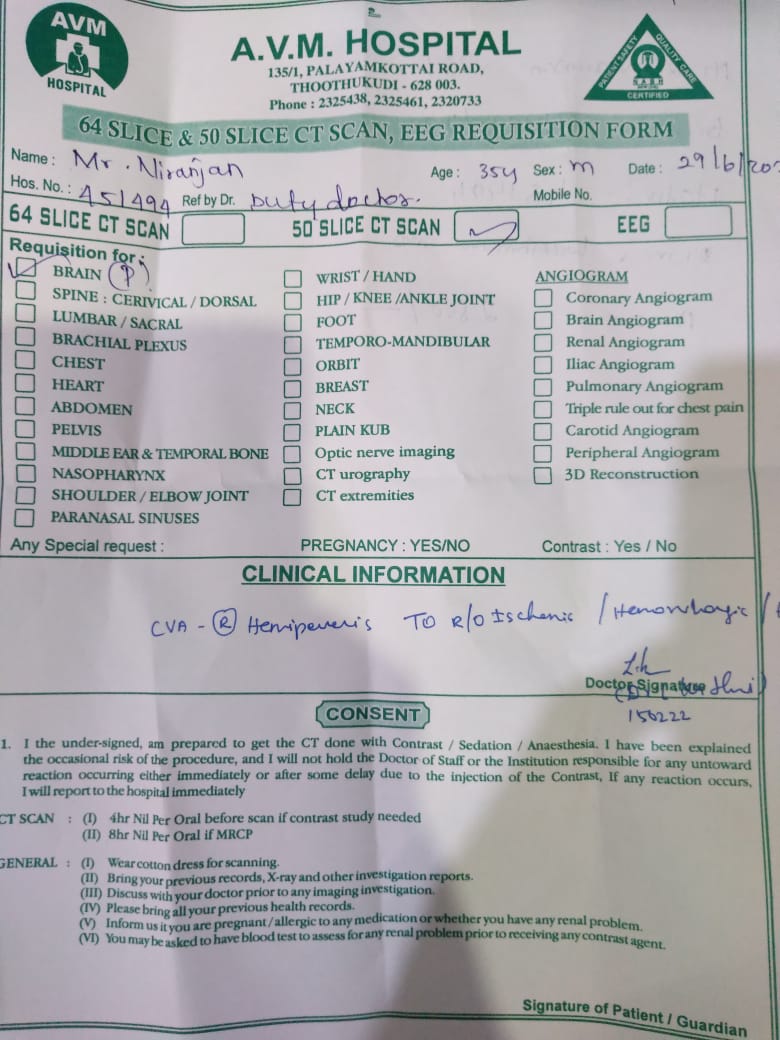 AVM
HOSPITAL
A.V.M. HOSPITAL
135/1, PALAYAMKOTTAI ROAD,
THOOTHUKUDI - 628 003.
Phone : 2325438, 2325461, 2320733
PATIENT SAFETY QUALITY CARE
CERTIFIED
64 SLICE & 50 SLICE CT SCAN, EEG REQUISITION FORM
Name : Mr. Niranjan Age : 35y Sex : m Date : 29/6/202
Hos. No. : 451494 Ref by Dr. Duty doctor. Mobile No.
64 SLICE CT SCAN 50 SLICE CT SCAN EEG
Requisition for :
BRAIN (P)
SPINE : CERIVICAL / DORSAL
LUMBAR / SACRAL
BRACHIAL PLEXUS
CHEST
HEART
ABDOMEN
PELVIS
MIDDLE EAR & TEMPORAL BONE
NASOPHARYNX
SHOULDER / ELBOW JOINT
PARANASAL SINUSES
WRIST / HAND
HIP / KNEE /ANKLE JOINT
FOOT
TEMPORO-MANDIBULAR
ORBIT
BREAST
NECK
PLAIN KUB
Optic nerve imaging
CT urography
CT extremities
ANGIOGRAM
Coronary Angiogram
Brain Angiogram
Renal Angiogram
Iliac Angiogram
Pulmonary Angiogram
Triple rule out for chest pain
Carotid Angiogram
Peripheral Angiogram
3D Reconstruction
Any Special request : PREGNANCY : YES/NO Contrast : Yes / No
CLINICAL INFORMATION
CVA - R Hemiperesis TO R/O Ischemic / Hemorrhagic /
Doctor Signature
156222
CONSENT
1. I the under-signed, am prepared to get the CT done with Contrast / Sedation / Anaesthesia. I have been explained
the occasional risk of the procedure, and I will not hold the Doctor of Staff or the Institution responsible for any untoward
reaction occurring either immediately or after some delay due to the injection of the Contrast, If any reaction occurs,
I will report to the hospital immediately
CT SCAN : (I) 4hr Nil Per Oral before scan if contrast study needed
(II) 8hr Nil Per Oral if MRCP
GENERAL : (I) Wear cotton dress for scanning.
(II) Bring your previous records, X-ray and other investigation reports.
(III) Discuss with your doctor prior to any imaging investigation.
(IV) Please bring all your previous health records.
(V) Inform us it you are pregnant /allergic to any medication or whether you have any renal problem.
(VI) You may be asked to have blood test to assess for any renal problem prior to receiving any contrast agent.
Signature of Patient / Guardian